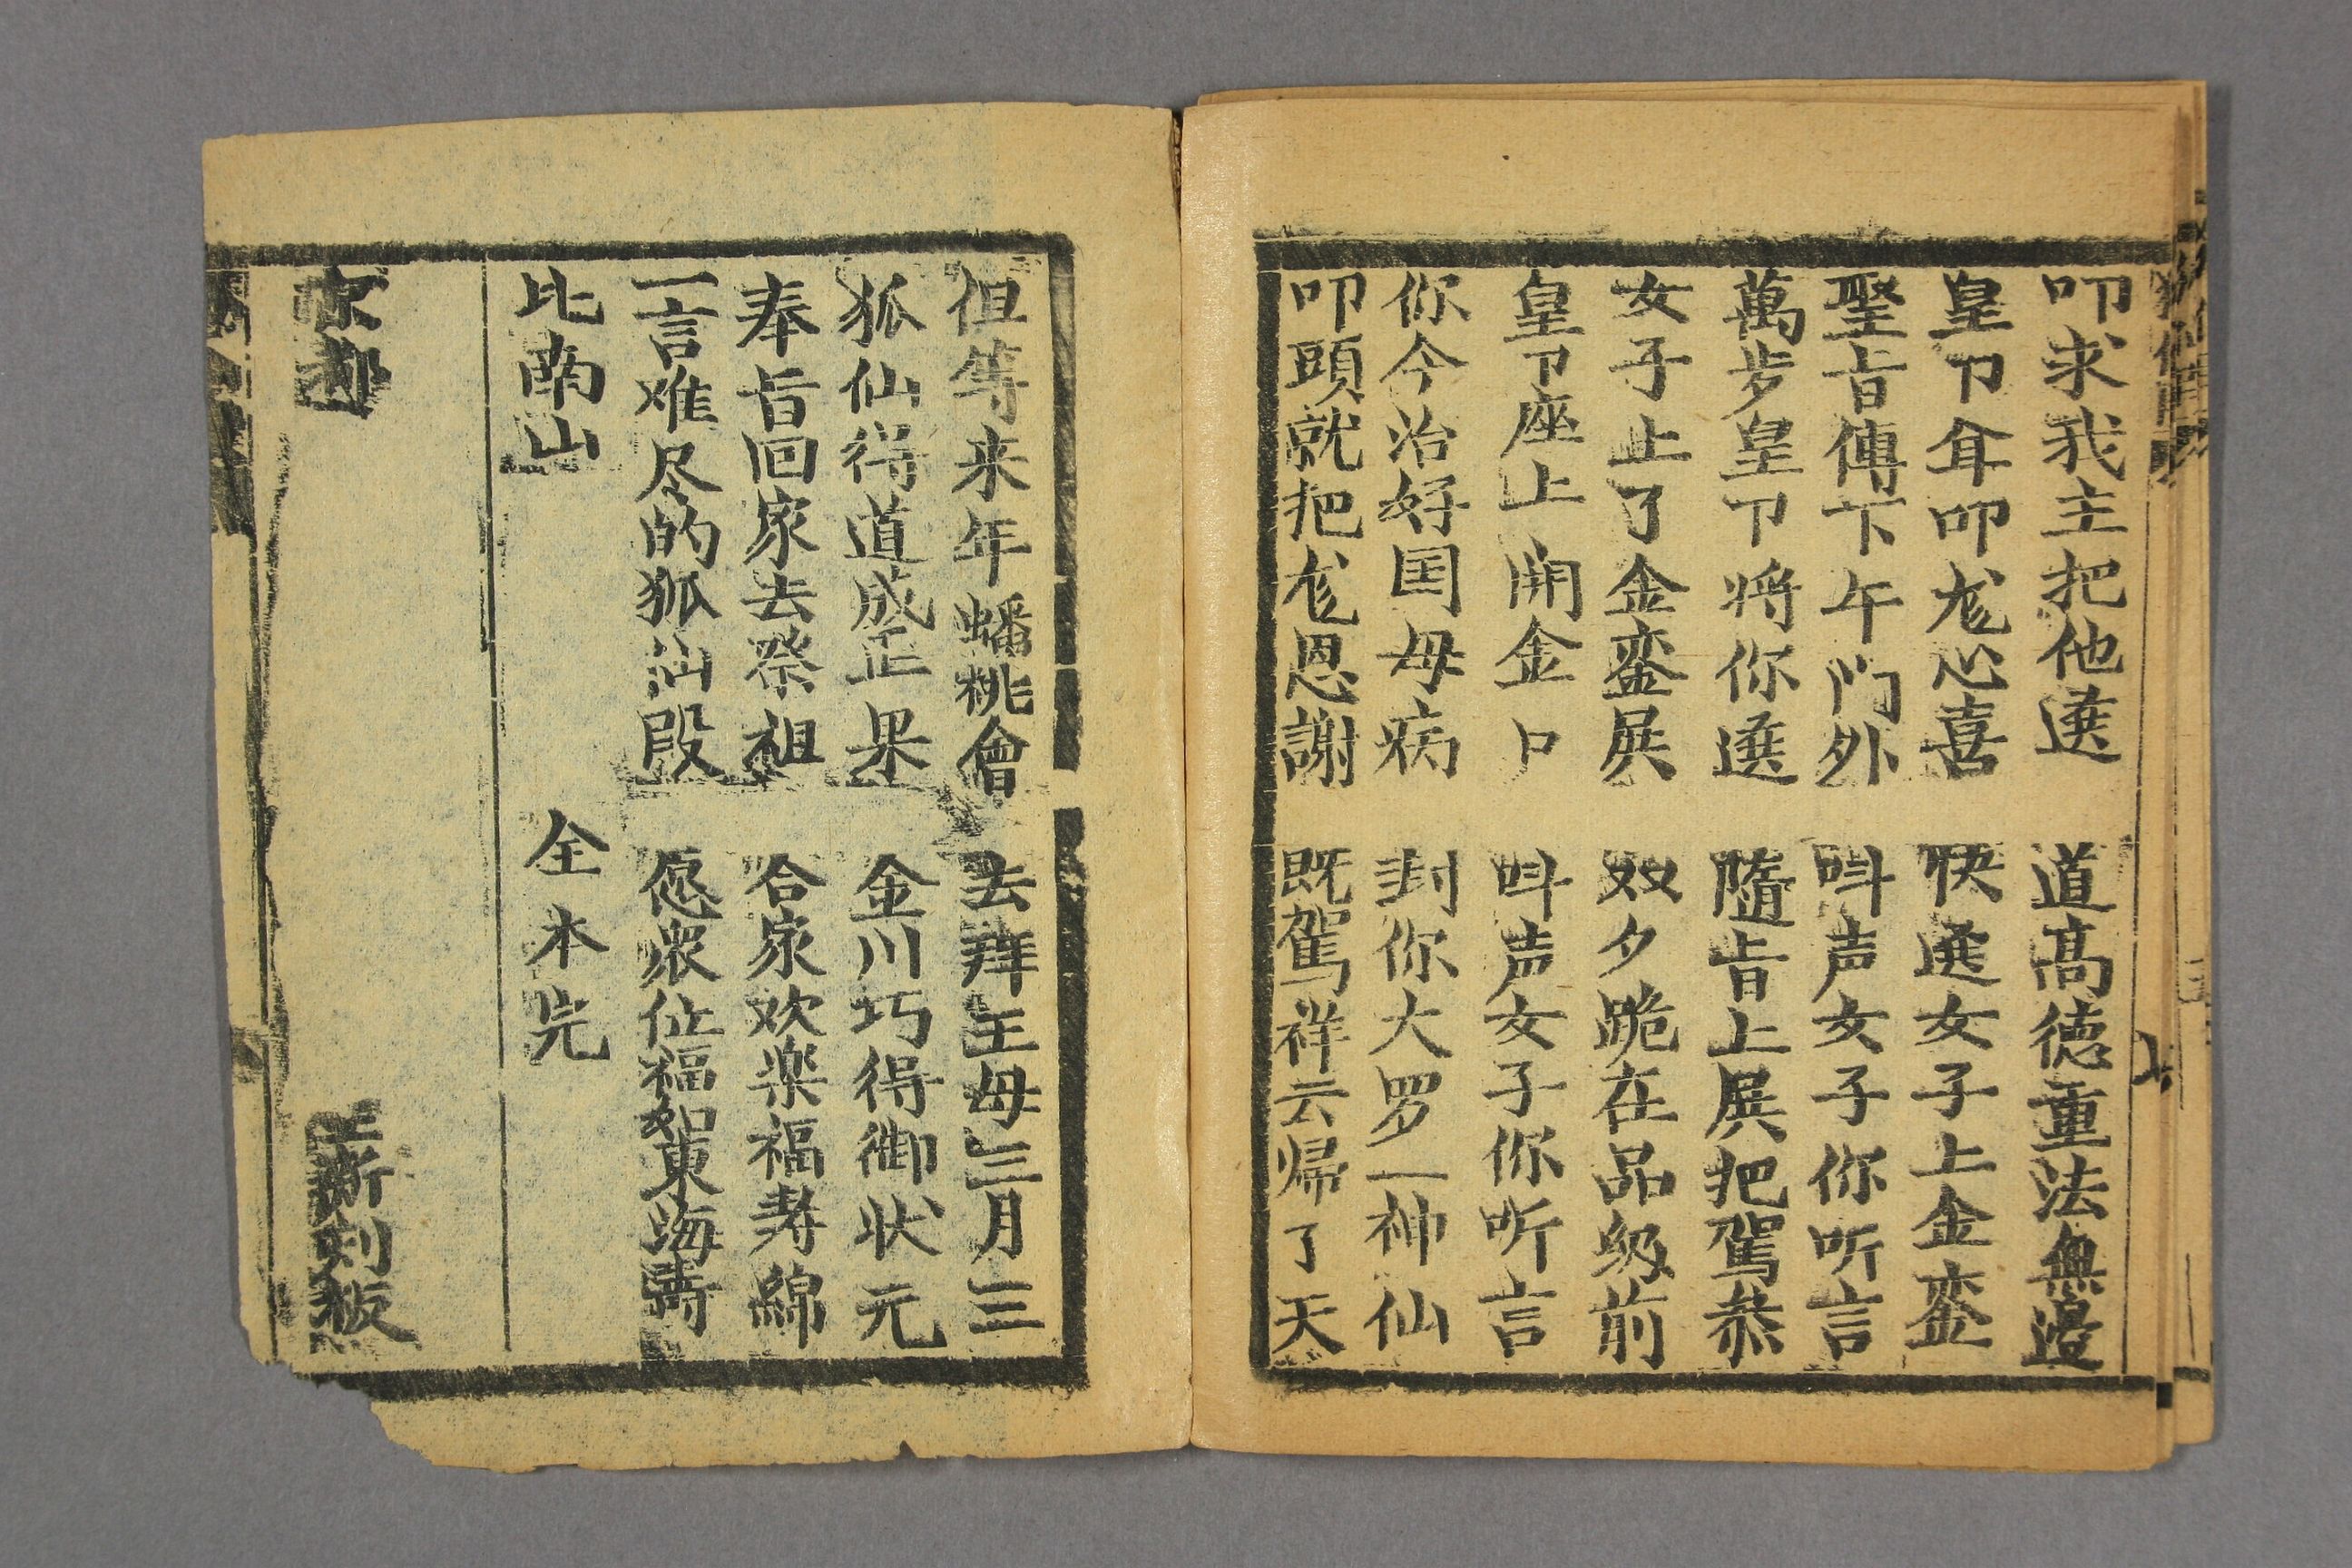 叩求我主把他選　道高德重法無邊
皇卩耳叩尨心喜　快選女子上金銮
聖旨傳下午门外　呌声女子你听言
萬步皇卩将你選　隨旨上展把駕恭
女子止了金銮展　双夕跪在品級前
皇卩座上開金口　呌声女子你听言
你今治好国母病　封你大罗一神仙
叩頭就把尨恩謝　既駕祥云歸了天
但等来年蟠桃會　去拜王母三月三
狐仙得道成正果　金川巧得御状元
奉旨回家去祭祖　合家欢楽福寿綿
一言难尽的狐仙段　愿衆位福如東海壽
比南山　全本完
京都　新刻板